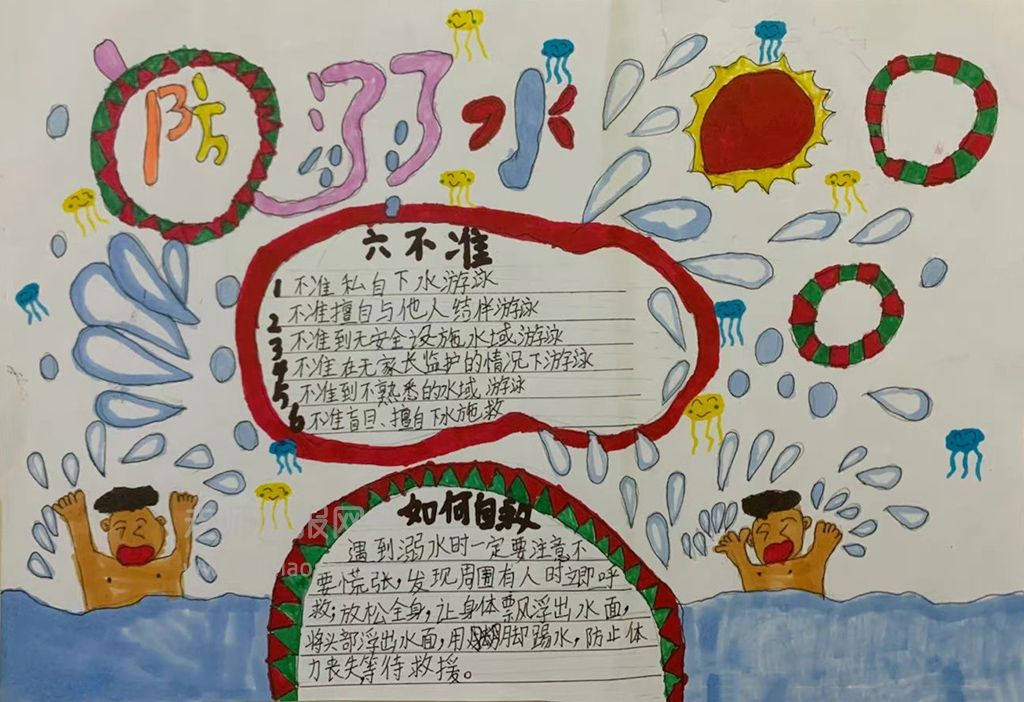 防溺水
六不准
1 不准私自下水游泳
2 不准擅自与他人结伴游泳
3 不准到无安全设施水域游泳
4 不准在无家长监护的情况下游泳
5 不准到不熟悉的水域游泳
6 不准盲目、擅自下水施救
如何自救
遇到溺水时一定要注意不
要慌张,发现周围有人时立即呼
救;放松全身,让身体飘浮出水面,
将头部浮出水面,用脚踢水,防止体
力丧失等待救援。